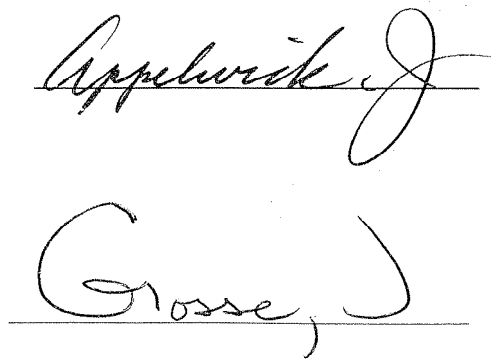 Appelwick, J
Grosse, J